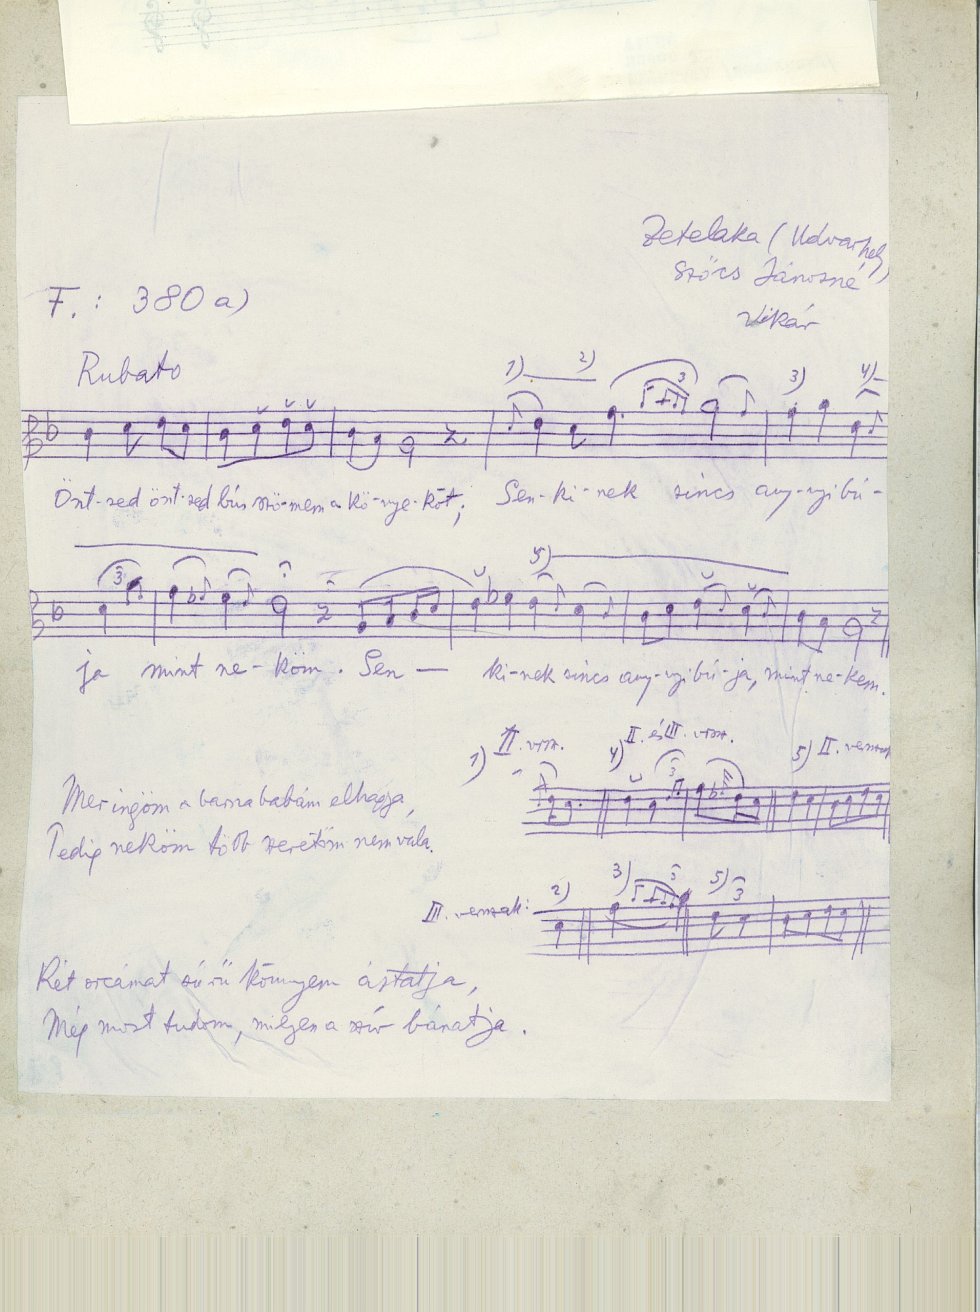 Zetelaka (Udvarhely)
Szőcs Jánosné
Vikár
F.: 380 a)
Rubato
1) 2) 3 3) 4)
Önt-zed önt-zed bús szö-mem a kö-nye-köt; Sen-ki-nek sincs any-nyi bú-
3 5)
ja mint ne-köm. Sen — ki-nek sincs any-nyi bú-ja, mint ne-kem.
1) II. vsz. 4) II. és III. vsz. 5) II. versszak
3
Mer ingöm a barna babám elhagja,
Pedig neköm több szeretöm nem vala.
III. versszak: 2) 3) 3 5) 3
Két orcámat sűrű könnyem ástatja,
Még most tudom, milyen a szív bánatja.